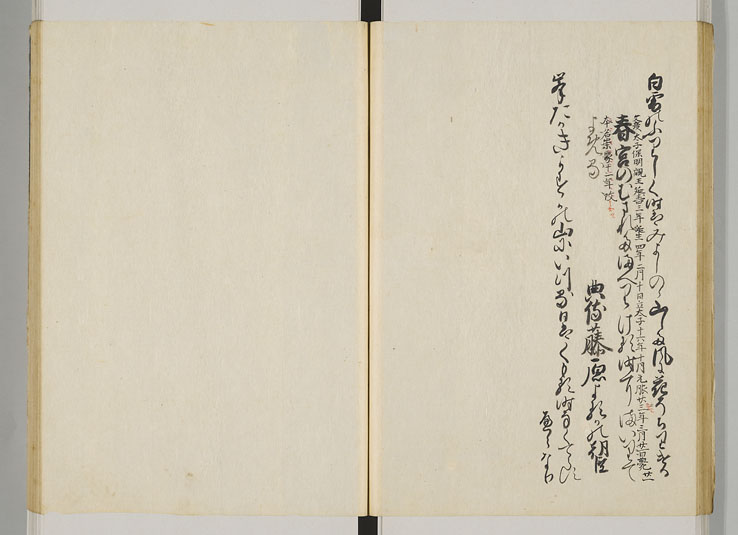 白雪のふりしく時はみよしのゝ山した風に花そちりける
文彦太子保明親王延喜三年誕生四年二月十日立太子十六年十月元服廿三年三月廿一日薨廿一
春宮のむまれたまへりける時にまいりて
本名崇象十一年改
よめる
典侍藤原よるかの朝臣
峯たかきかすかの山にいつる日はくもる時なくてらす
へらなり